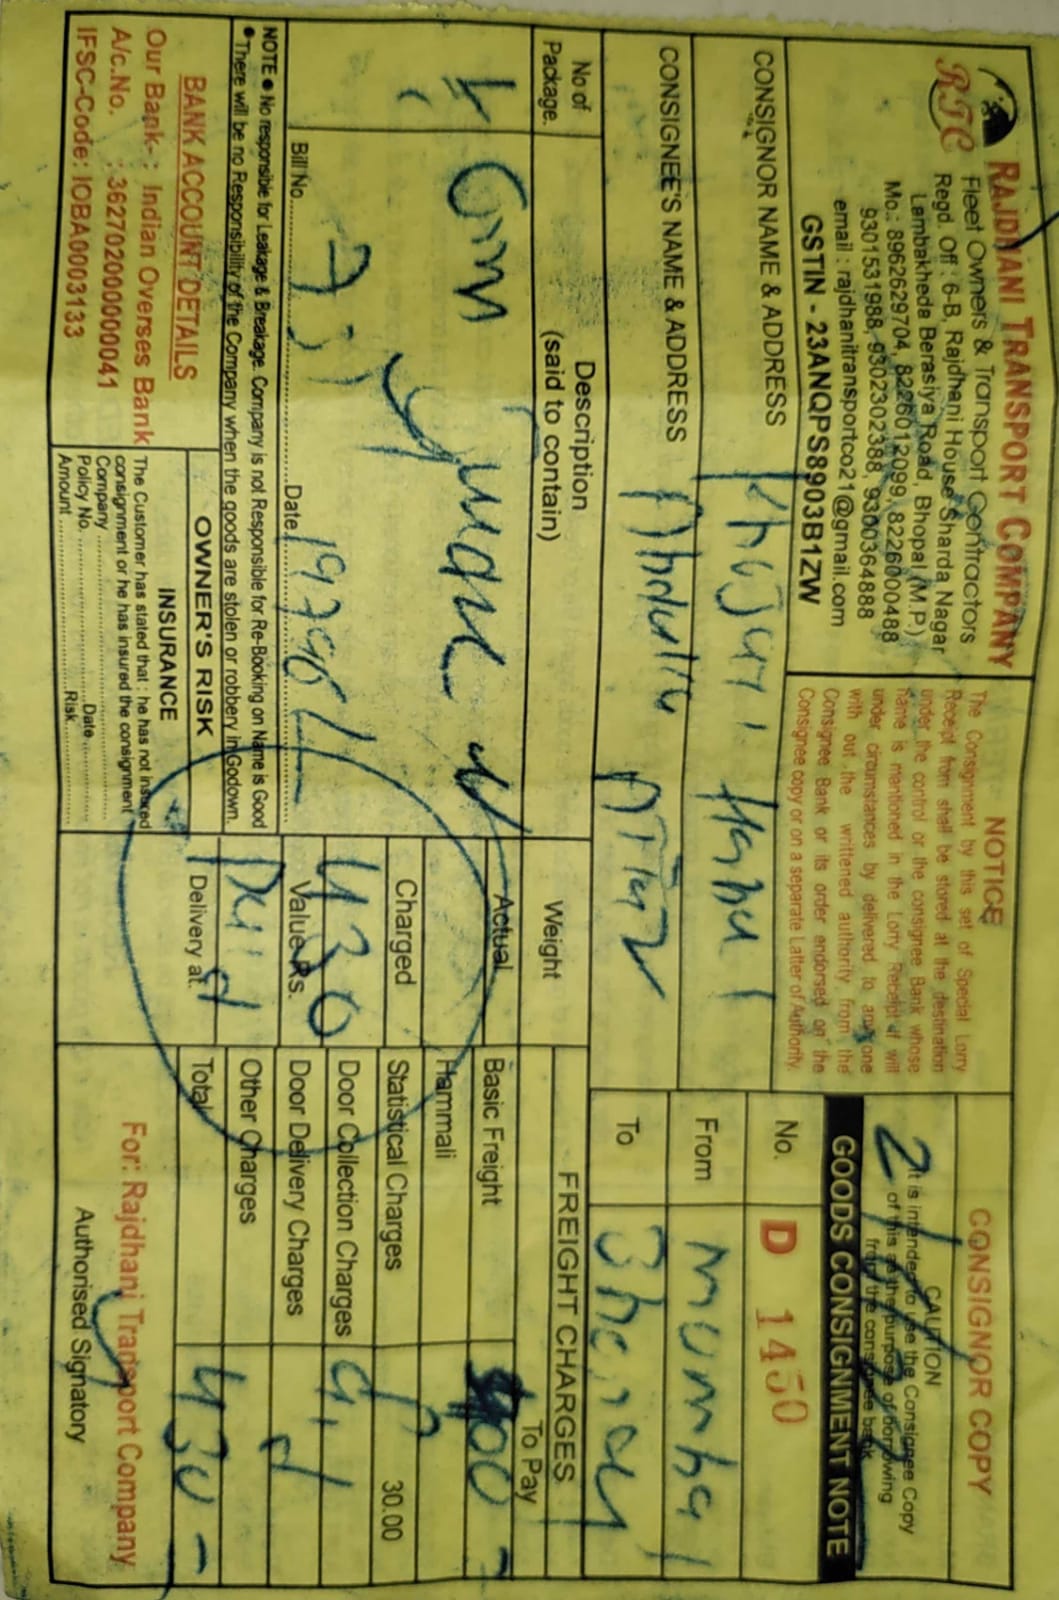 RAJDHANI TRANSPORT COMPANY
RTC
Fleet Owners & Transport Contractors
Regd. Off : 6-B, Rajdhani House Sharda Nagar
Lambakheda Berasiya Road, Bhopal (M.P)
Mo.: 8962629704, 8226012099, 8226000488
9301531988, 9302302388, 9300364888
email : rajdhanitransportco21@gmail.com
GSTIN - 23ANQPS8903B1ZW
NOTICE
The Consignment by this set of Special Lorry
Receipt from shall be stored at the destination
under the control or the consignee Bank whose
name is mentioned in the Lorry Receipt it will
under circumstances by delivered to any one
with out the writtened authority from the
Consignee Bank or its order endorsed on the
Consignee copy or on a separate Latter of Authority.
CONSIGNOR COPY
CAUTION
It is intended to use the Consignee Copy
of this as the purpose of borrowing
from the consignee bank
GOODS CONSIGNMENT NOTE
No. D 1450
From mumbai
To Bhopal
CONSIGNOR NAME & ADDRESS
CONSIGNEE'S NAME & ADDRESS
No of Package.
Description
(said to contain)
Weight
FREIGHT CHARGES
To Pay
Actual
Basic Freight
Hammali
Charged
Statistical Charges 30.00
430
Door Collection Charges
Value Rs.
Door Delivery Charges
Paid
Other Charges
Delivery at.
Total 430 -
Bill No. Date
NOTE ● No responsible for Leakage & Breakage. Company is not Responsible for Re-Booking on Name is Good
● There will be no Responsibility of the Company when the goods are stolen or robbery in Godown.
BANK ACCOUNT DETAILS
Our Bank- : Indian Overses Bank
A/c.No. : 362702000000041
IFSC-Code: IOBA0003133
OWNER'S RISK
INSURANCE
The Customer has stated that : he has not insured
consignment or he has insured the consignment
Company
Policy No. Date
Amount Risk
For: Rajdhani Transport Company
Authorised Signatory